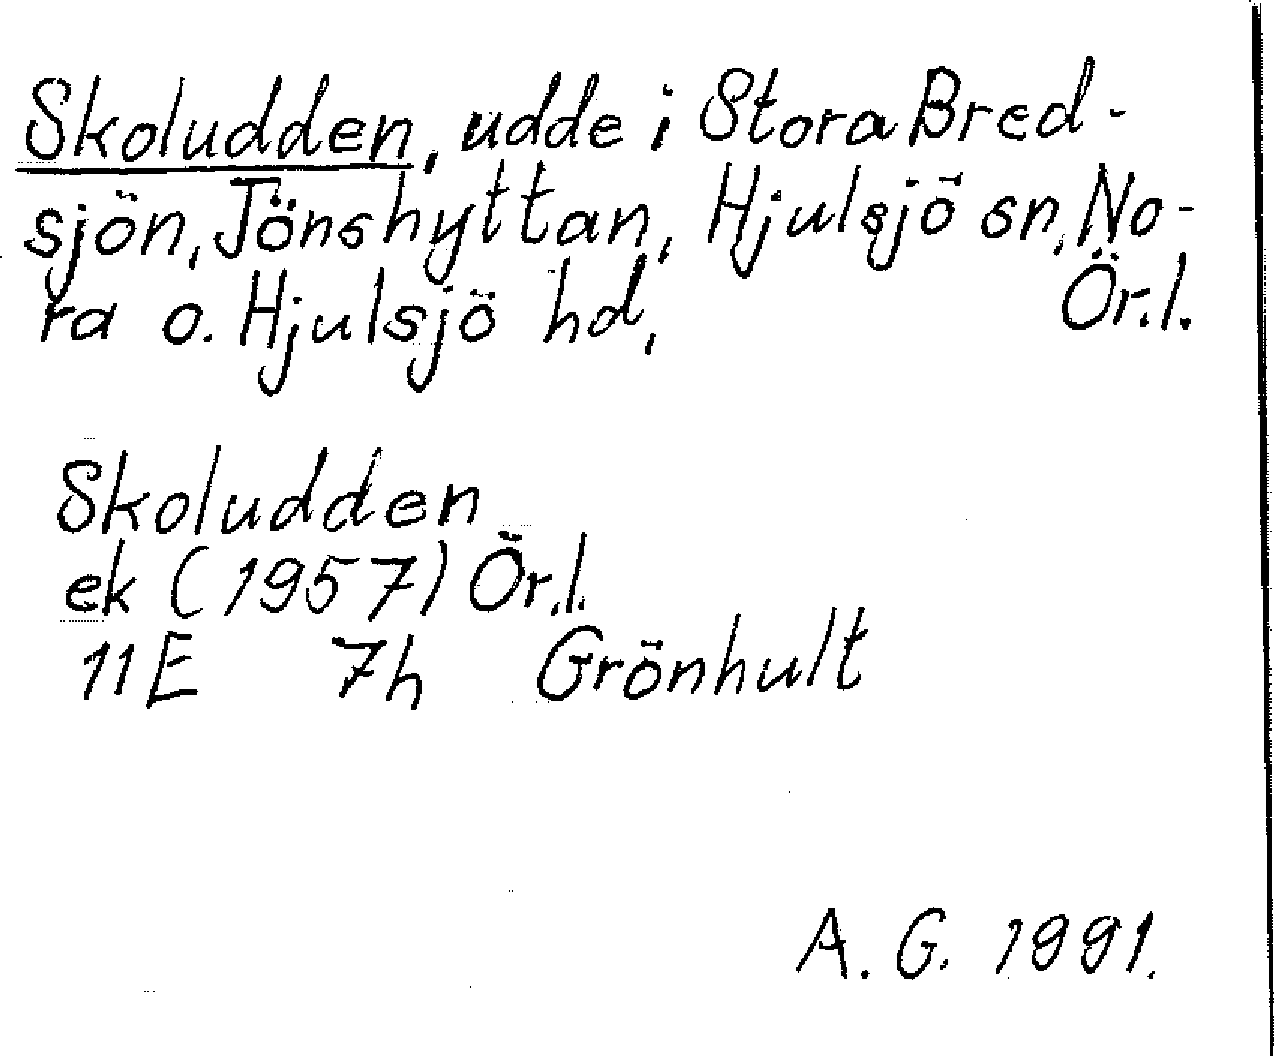 Skoludden, udde i Stora Bred-
sjön, Jönshyttan, Hjulsjö sn, No-
ra o. Hjulsjö hd, Ör.l.
Skoludden
ek (1957) Ör.l.
11E 7h Grönhult
A. G. 1991.